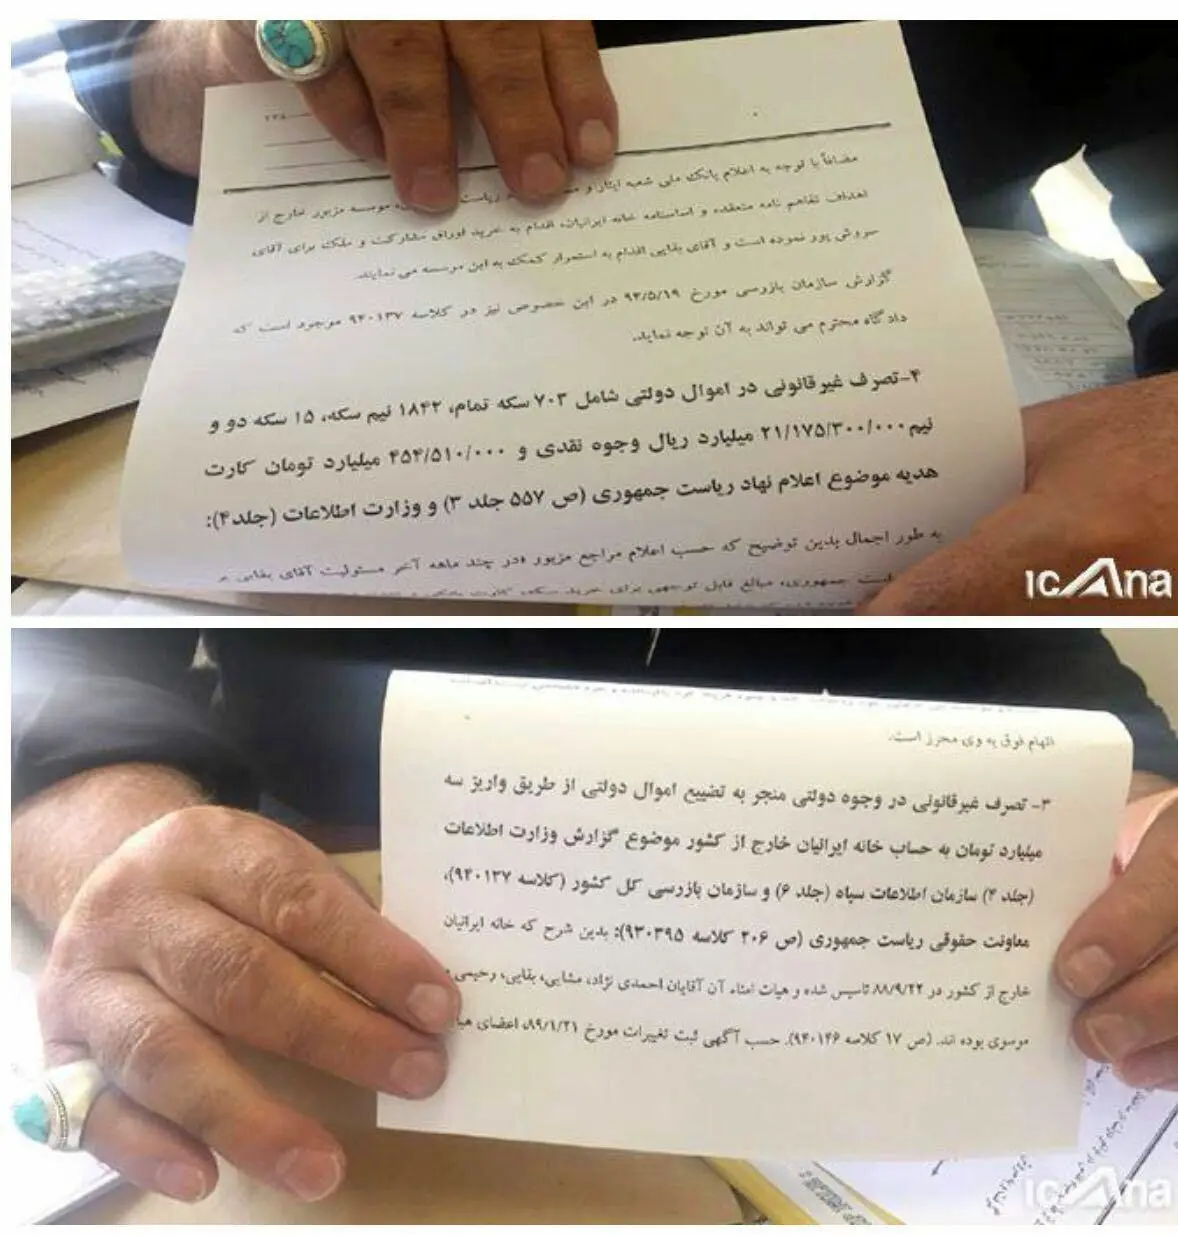 ۲۲۸
مضافاً با توجه به اعلام بانک ملی شعبه ایثار و ریاست موسسه مزبور خارج از
اهداف تفاهم نامه منعقده و اساسنامه خانه ایرانیان، اقدام به خرید اوراق مشارکت و ملک برای آقای
سروش پور نموده است و آقای بقایی اقدام به استمرار کمک به این موسسه می نمایند.
گزارش سازمان بازرسی مورخ ۹۴/۵/۱۹ در این خصوص نیز در کلاسه ۹۴۰۱۳۷ موجود است که
دادگاه محترم می تواند به آن توجه نماید.
۴-تصرف غیرقانونی در اموال دولتی شامل ۷۰۳ سکه تمام، ۱۸۴۲ نیم سکه، ۱۵ سکه دو و
نیم ۲۱/۱۷۵/۳۰۰/۰۰۰ میلیارد ریال وجوه نقدی و ۴۵۴/۵۱۰/۰۰۰ میلیارد تومان کارت
هدیه موضوع اعلام نهاد ریاست جمهوری (ص ۵۵۷ جلد ۳) و وزارت اطلاعات (جلد۴):
به طور اجمال بدین توضیح که حسب اعلام مراجع مزبور «در چند ماهه آخر مسئولیت آقای بقایی
است جمهوری، مبالغ قابل توجهی برای خرید سکه، کارت
icAna
اتهام فوق به وی محرز است.
۳- تصرف غیرقانونی در وجوه دولتی منجر به تضییع اموال دولتی از طریق واریز سه
میلیارد تومان به حساب خانه ایرانیان خارج از کشور موضوع گزارش وزارت اطلاعات
(جلد ۴) سازمان اطلاعات سپاه (جلد ۶) و سازمان بازرسی کل کشور (کلاسه ۹۴۰۱۳۷)،
معاونت حقوقی ریاست جمهوری (ص ۲۰۶ کلاسه ۹۳۰۳۹۵): بدین شرح که خانه ایرانیان
خارج از کشور در ۸۸/۹/۲۲ تاسیس شده و هیات امناء آن آقایان احمدی نژاد، مشایی، بقایی، رحیمی
موسوی بوده اند. (ص ۱۷ کلاسه ۹۴۰۱۴۶). حسب آگهی ثبت تغییرات مورخ ۸۹/۱/۲۱، اعضای
icAna